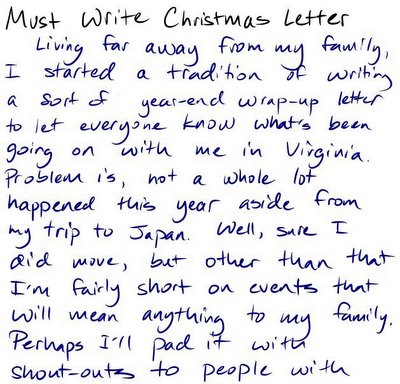 Must Write Christmas Letter
Living far away from my family,
I started a tradition of writing
a sort of year-end wrap-up letter
to let everyone know what's been
going on with me in Virginia.
Problem is, not a whole lot
happened this year aside from
my trip to Japan. Well, sure I
did move, but other than that
I'm fairly short on events that
will mean anything to my family.
Perhaps I'll pad it with
shout-outs to people with